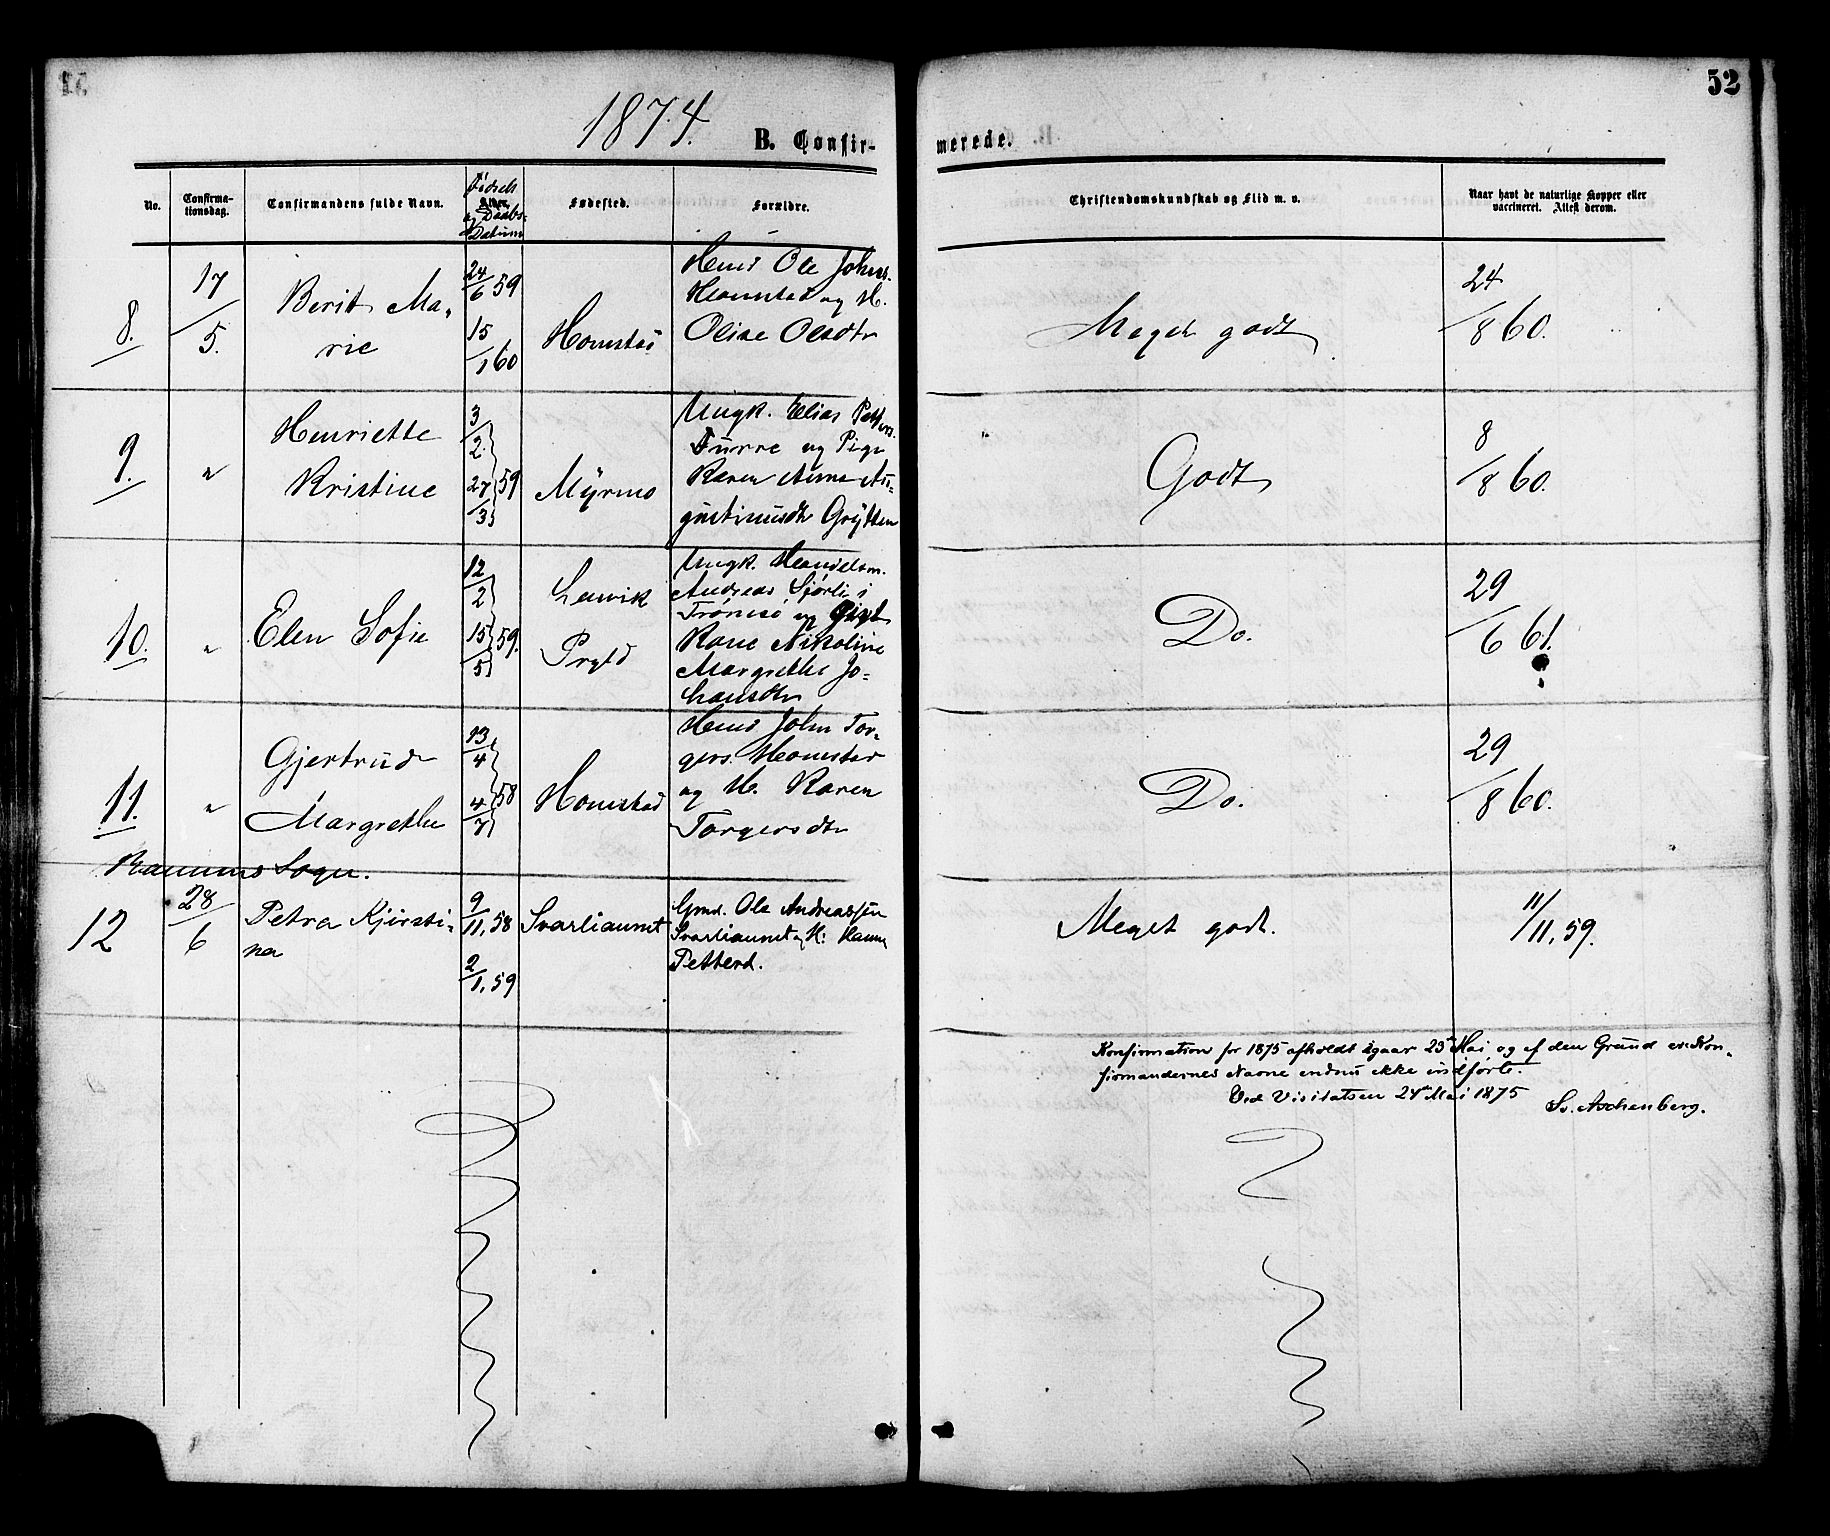 52
1874.
B. Confir-
merede.
No.
Confirma-
tionsdag.
Confirmandens fulde Navn.
Fødsels
Alder.
og Daabs-
Datum
Fødested.
Forældre.
Christendomskundskab og Flid m. v.
Naar havt de naturlige Kopper eller
vaccineret. Attest derom.
8.
17/5.
Berit Ma-
rie
24/6 59
15/1 60
Homstad
Huus Ole Johns.
Homstad og H.
Olise Olsdtr
Meget godt
24/8 60.
9.
"
Henriette
Kristine
3/2
27/3 59
Myrmo
Ungk. Elias Petters.
Furre og Pige
Karen Anna Au-
gustinusdtr Grytten
Godt
8/8 60.
10.
"
Elen Sofie
12/2
15/5 59.
Ungk. Handelsm.
Andreas Sjørli i
Tromsø og Pige
Nikoline
Margrethe Jo-
hansdtr
Do.
29/6 61.
11.
"
Gjertrud
Margrethe
13/4
4/7 58
Homstad
Huus John Tor-
gers. Homstad
og H. Karen
Torgersdtr
Do.
29/8 60.
Ranums Sogn.
12
28/6
Petra Kjirsti-
na
9/11, 58
2/1, 59
Svarliaunet
Gmd. Ole Andreassen
Svarliaunet og H: Hanna
Petterd.
Meget godt.
11/11, 59.
Konfirmation for 1875 afholdt igaar 23de Mai, og af den Grund er Kon-
firmandernes Navne endnu ikke indførte.
Ved Visitatsen 24de Mai 1875
Sv. Aschenberg.